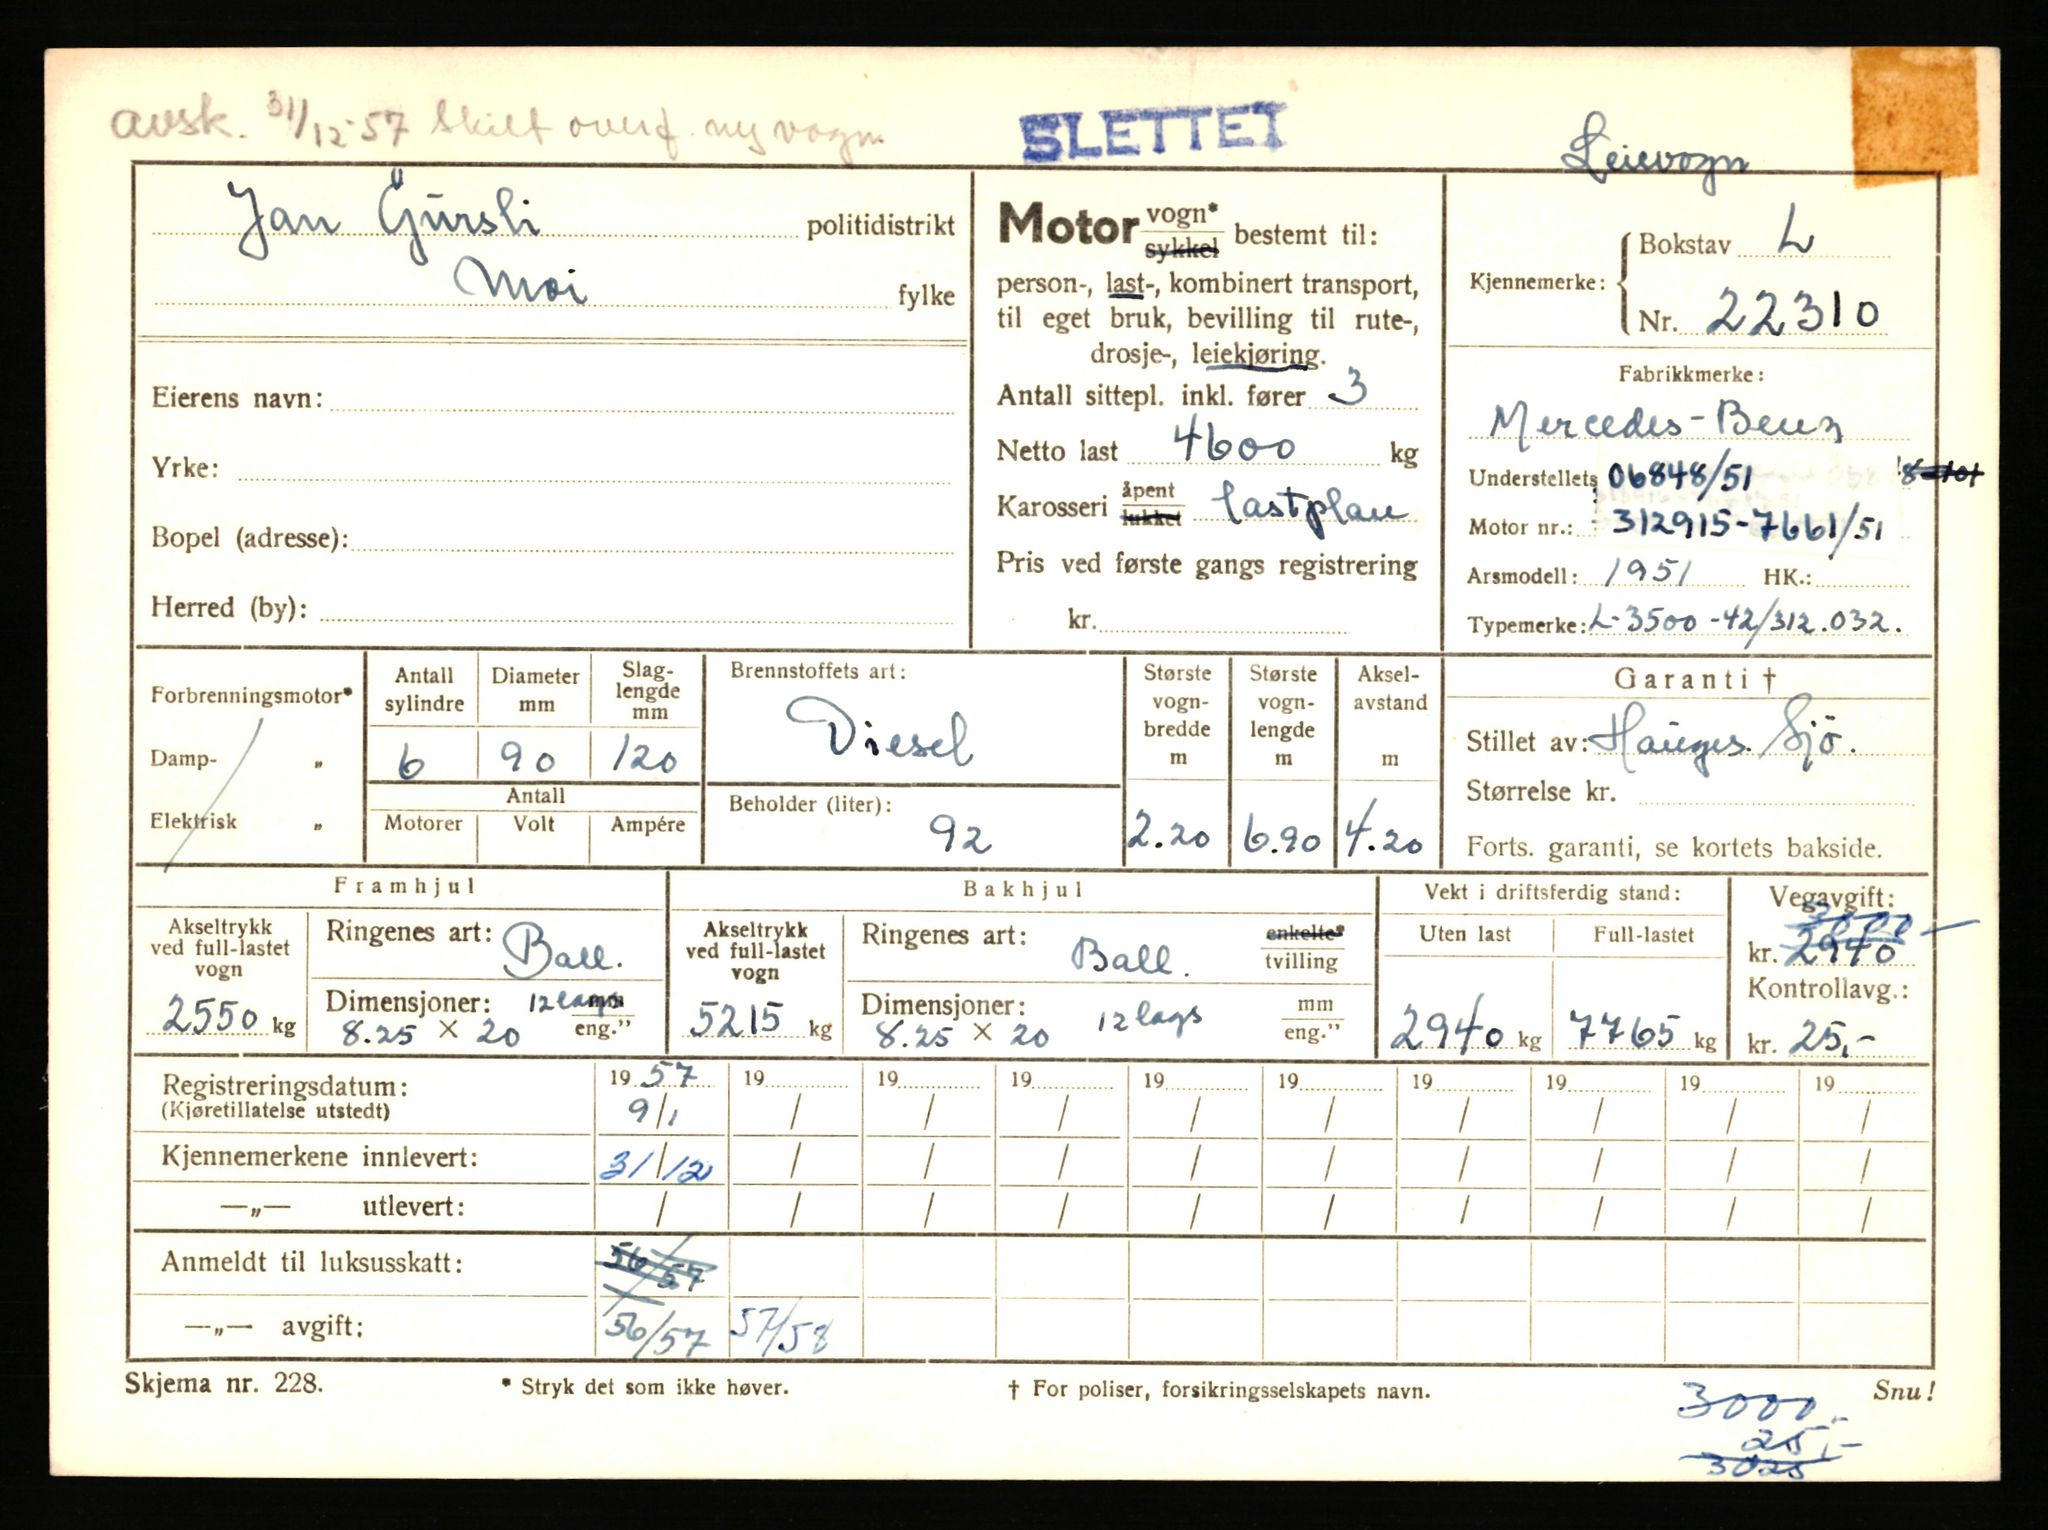 avsk. 31/12-57 Skilt overf. ny vogn
SLETTET
Leievogn
Jan Gursli politidistrikt
Moi fylke
Eierens navn:
Yrke:
Bopel (adresse):
Herred (by):
Motor vogn* sykkel bestemt til:
person-, last-, kombinert transport,
til eget bruk, bevilling til rute-,
drosje-, leiekjøring.
Antall sittepl. inkl. fører 3
Netto last 4600 kg
Karosseri åpent lukket lasteplan
Pris ved første gangs registrering
kr.
Kjennemerke: Bokstav L
Nr. 22310
Fabrikkmerke:
Mercedes-Benz
Understellets 06848/51
Motor nr.: 312915-7661/51
Arsmodell: 1951 HK.:
Typemerke: L-3500-42/312.032.
Forbrenningsmotor*
Damp- „
Elektrisk „
Antall sylindre
6
Diameter mm
90
Slag-lengde mm
120
Antall
Motorer Volt Ampére
Brennstoffets art:
Diesel
Beholder (liter):
92
Største vogn-bredde m
2.20
Største vogn-lengde m
6.90
Aksel-avstand m
4.20
Garanti †
Stillet av: Hauges. Sjö.
Størrelse kr.
Forts. garanti, se kortets bakside.
Framhjul
Akseltrykk ved full-lastet vogn
2550 kg
Ringenes art: Ball.
Dimensjoner: 12 lags mm
8.25 × 20 eng.”
Bakhjul
Akseltrykk ved full-lastet vogn
5215 kg
Ringenes art: Ball. enkelte* tvilling
Dimensjoner: 12 lags mm
8.25 × 20 eng.”
Vekt i driftsferdig stand:
Uten last Full-lastet
2940 kg 7765 kg
Vegavgift:
3000
kr. 2940
Kontrollavg.:
kr. 25,-
Registreringsdatum: 19 57 19 19 19 19 19 19 19 19 19
(Kjøretillatelse utstedt) 9/1 / / / / / / / / /
Kjennemerkene innlevert: 31/12 / / / / / / / / /
—„— utlevert: / / / / / / / / / /
Anmeldt til luksusskatt: 56/57
—„— avgift: 56/57 57/58
Skjema nr. 228. * Stryk det som ikke høver. † For poliser, forsikringsselskapets navn. Snu!
3000,-
25,-
3025